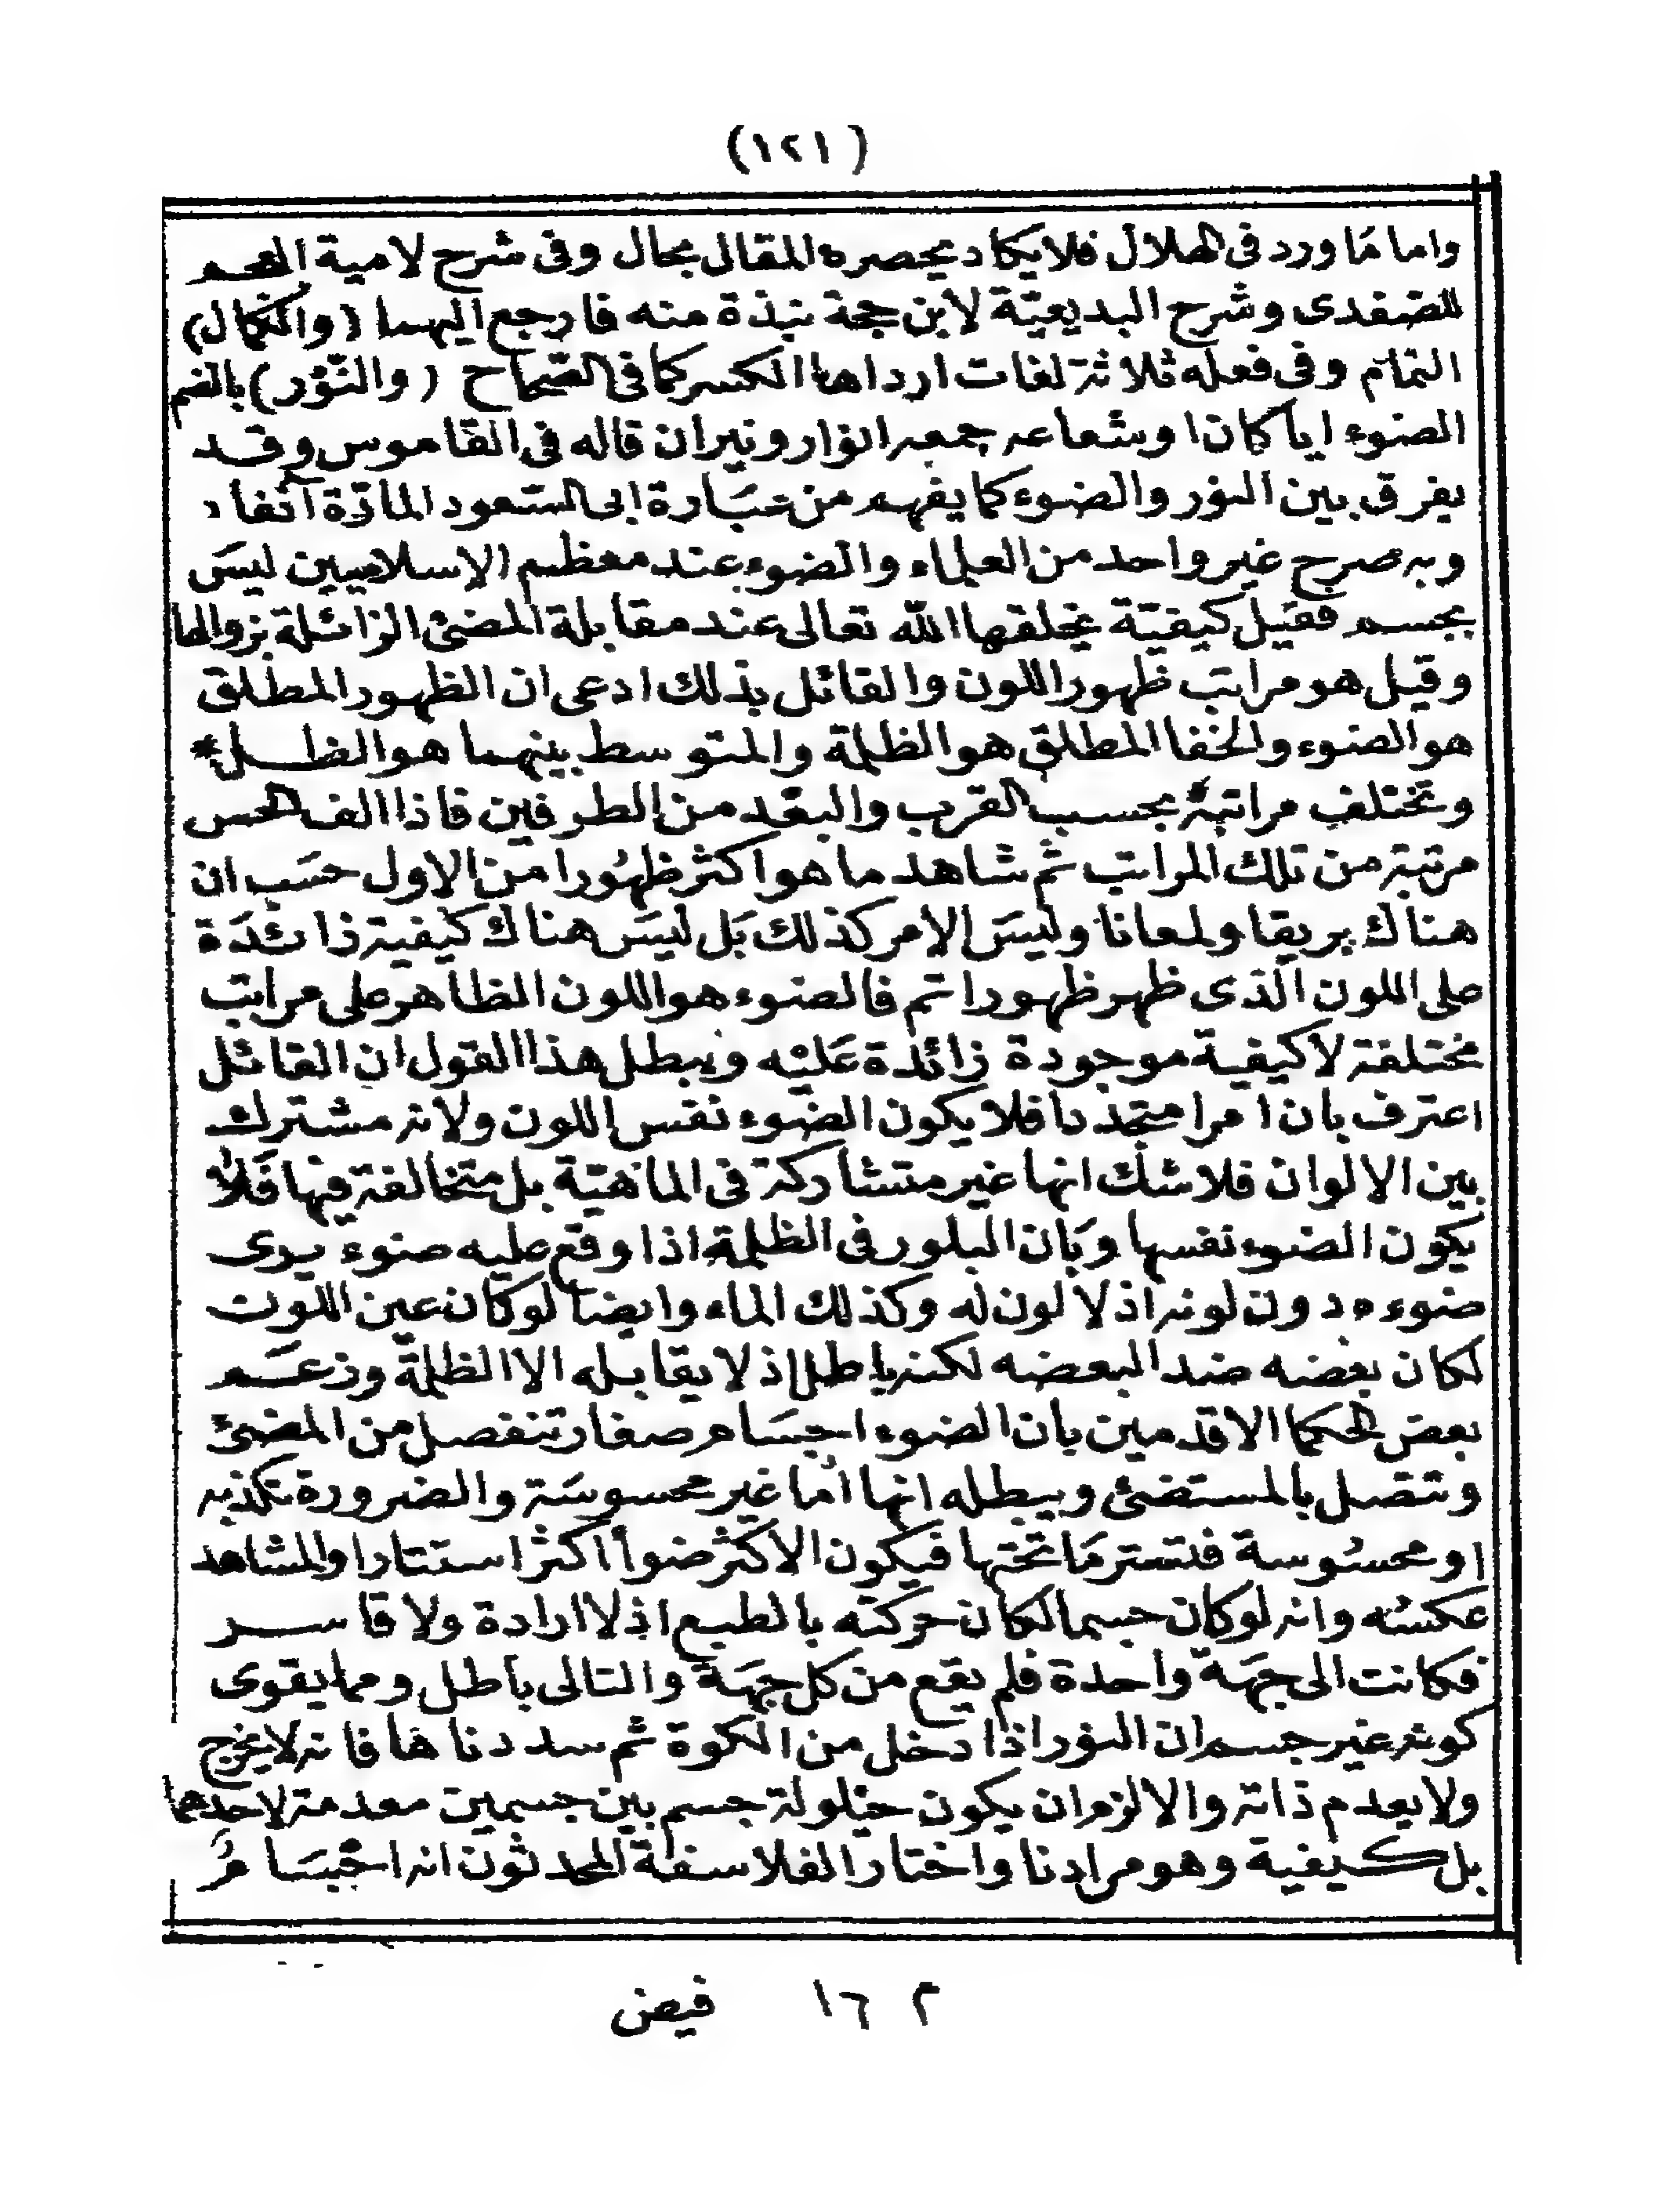 (١٢١)
واما مَا ورد فى الهلال فلا يكاد يحصره المقال بحال وفى شرح لامية العجم
للصفدى وشرح البديعيّة لابن حجة نبذة منه فارجع اليهما (والكمال)
التمام وفى فعله ثلاثة لغات ارداها الكسر كما فى الصّحاح (والنّوْر) بالضم
الضوء اياً كان او شعاعه جمعه انوار ونيران قاله فى القاموس وقد
يفرق بين النور والضوء كما يفهم من عبَارة ابى السّعود المارّة آنفاً
وبه صرح غير واحد من العلماء والضوء عند معظم الإسلاميين ليسَ
بجسم فقيل كيفيّة يخلقها الله تعالى عند مقابلة المضئ الزائلة بزوالها
وقيل هو مراتب ظهور اللون والقائل بذلك ادعى ان الظهور المطلق
هو الضوء والخفا المطلق هو الظلمة والمتوسط بينهما هو الظل*
وتختلف مراتبهُ بحسب القرب والبعْد من الطرفين فاذا الف الحس
مرتبة من تلك المراتب ثم شاهد ما هو اكثر ظهُورا من الاول حسَب ان
هناك بريقا ولمعانا وليسَ الامر كذلك بَل ليسَ هناك كيفية زائدَة
على اللون الّذى ظهر ظهورا تم فالضوء هو اللون الظاهر على مراتب
مختلفة لا كيفية موجودة زائدة عَليْه ويبطل هذا القول ان القائل
اعترف بان امرا متجددا فلا يكون الضوء نفس اللون ولانه مشترك
بين الالوان فلا شك انها غير متشاركة فى الماهيّة بل متخالفة فيها فَلا
يكون الضوء نفسها وبَان البلور فى الظلمة اذا وقع عليه ضوء يرى
ضوءه دون لونه اذ لا لون له وكذلك الماء وايضا لو كان عين اللون
لكان بعْضه ضد البعضه لكنه باطل اذ لا يقابله الا الظلمة وزعَم
بعض الحكما الاقدمين بان الضوء اجسَام صغار تنفصل من المضئ
وتتصل بالمستضئ ويبطله انها اما غير محسوسَة والضرورة تكذبه
او محسُوسة فتستر مَا تحتها فيكون الاكثر ضوأ اكثر استتارا والمشاهد
عكسُه وانه لو كان جسما لكان حركته بالطبع اذ لا ارادة ولا قاسر
فكانت الى جهَة واحدة فلم يقع من كل جهَة والتالى باطل ومما يقوى
كونه غير جسم ان النور اذا دخل من الكوة ثم سددناها فانه لا يخرج
ولا يعدم ذاته والا لزم ان يكون حيلولة جسم بين جسمين معدمة لاحدهما
بل كيفية وهو مرادنا واختار الفلاسفة المحدثون انه اجْسَامُ
٢ ١٦ فيض